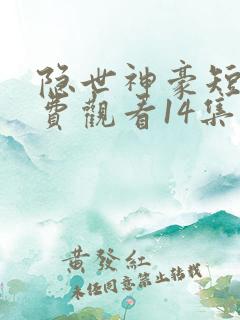 隐世神豪短
費觀看14集
黄發紅
未任同意禁止转载